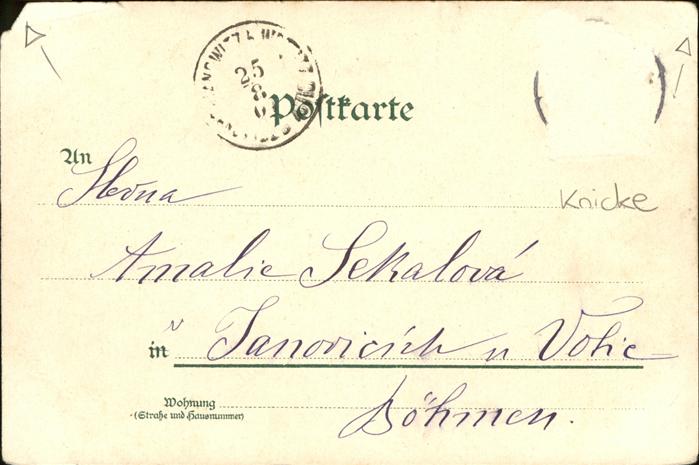 Postkarte
An
Slečna
Knicke
Amalie Sekalová
v
in Janovicích u Votic
Böhmen.
Wohnung
(Straße und Hausnummer)
25